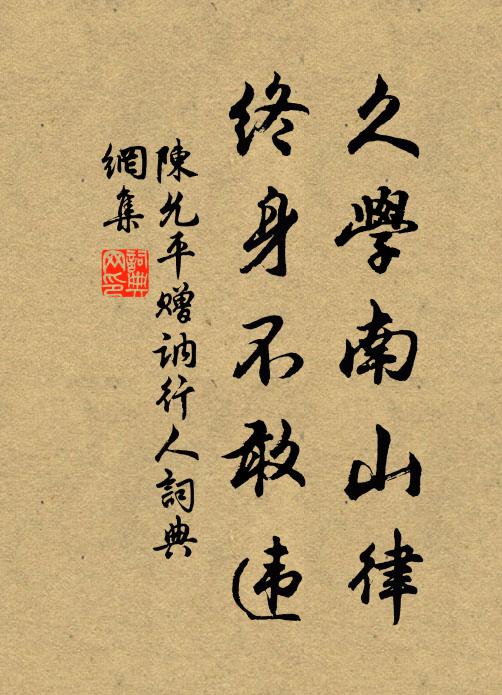 久學南山律
終身不敢违
陳允平赠訥行人詞典
網集
詞典网印